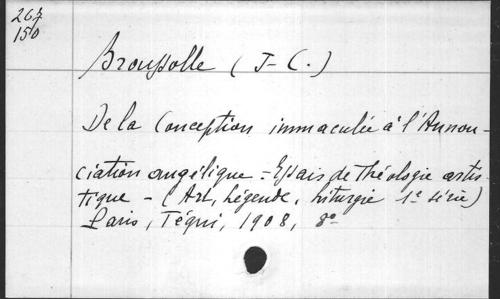 267
150
Broussolle (J-C.)
De la Conception immaculée à l'Annon-
ciation angélique = Essais de théologie artis
tique - (Art, Légende, Liturgie 1e série)
Paris, Téqui, 1908, 8º